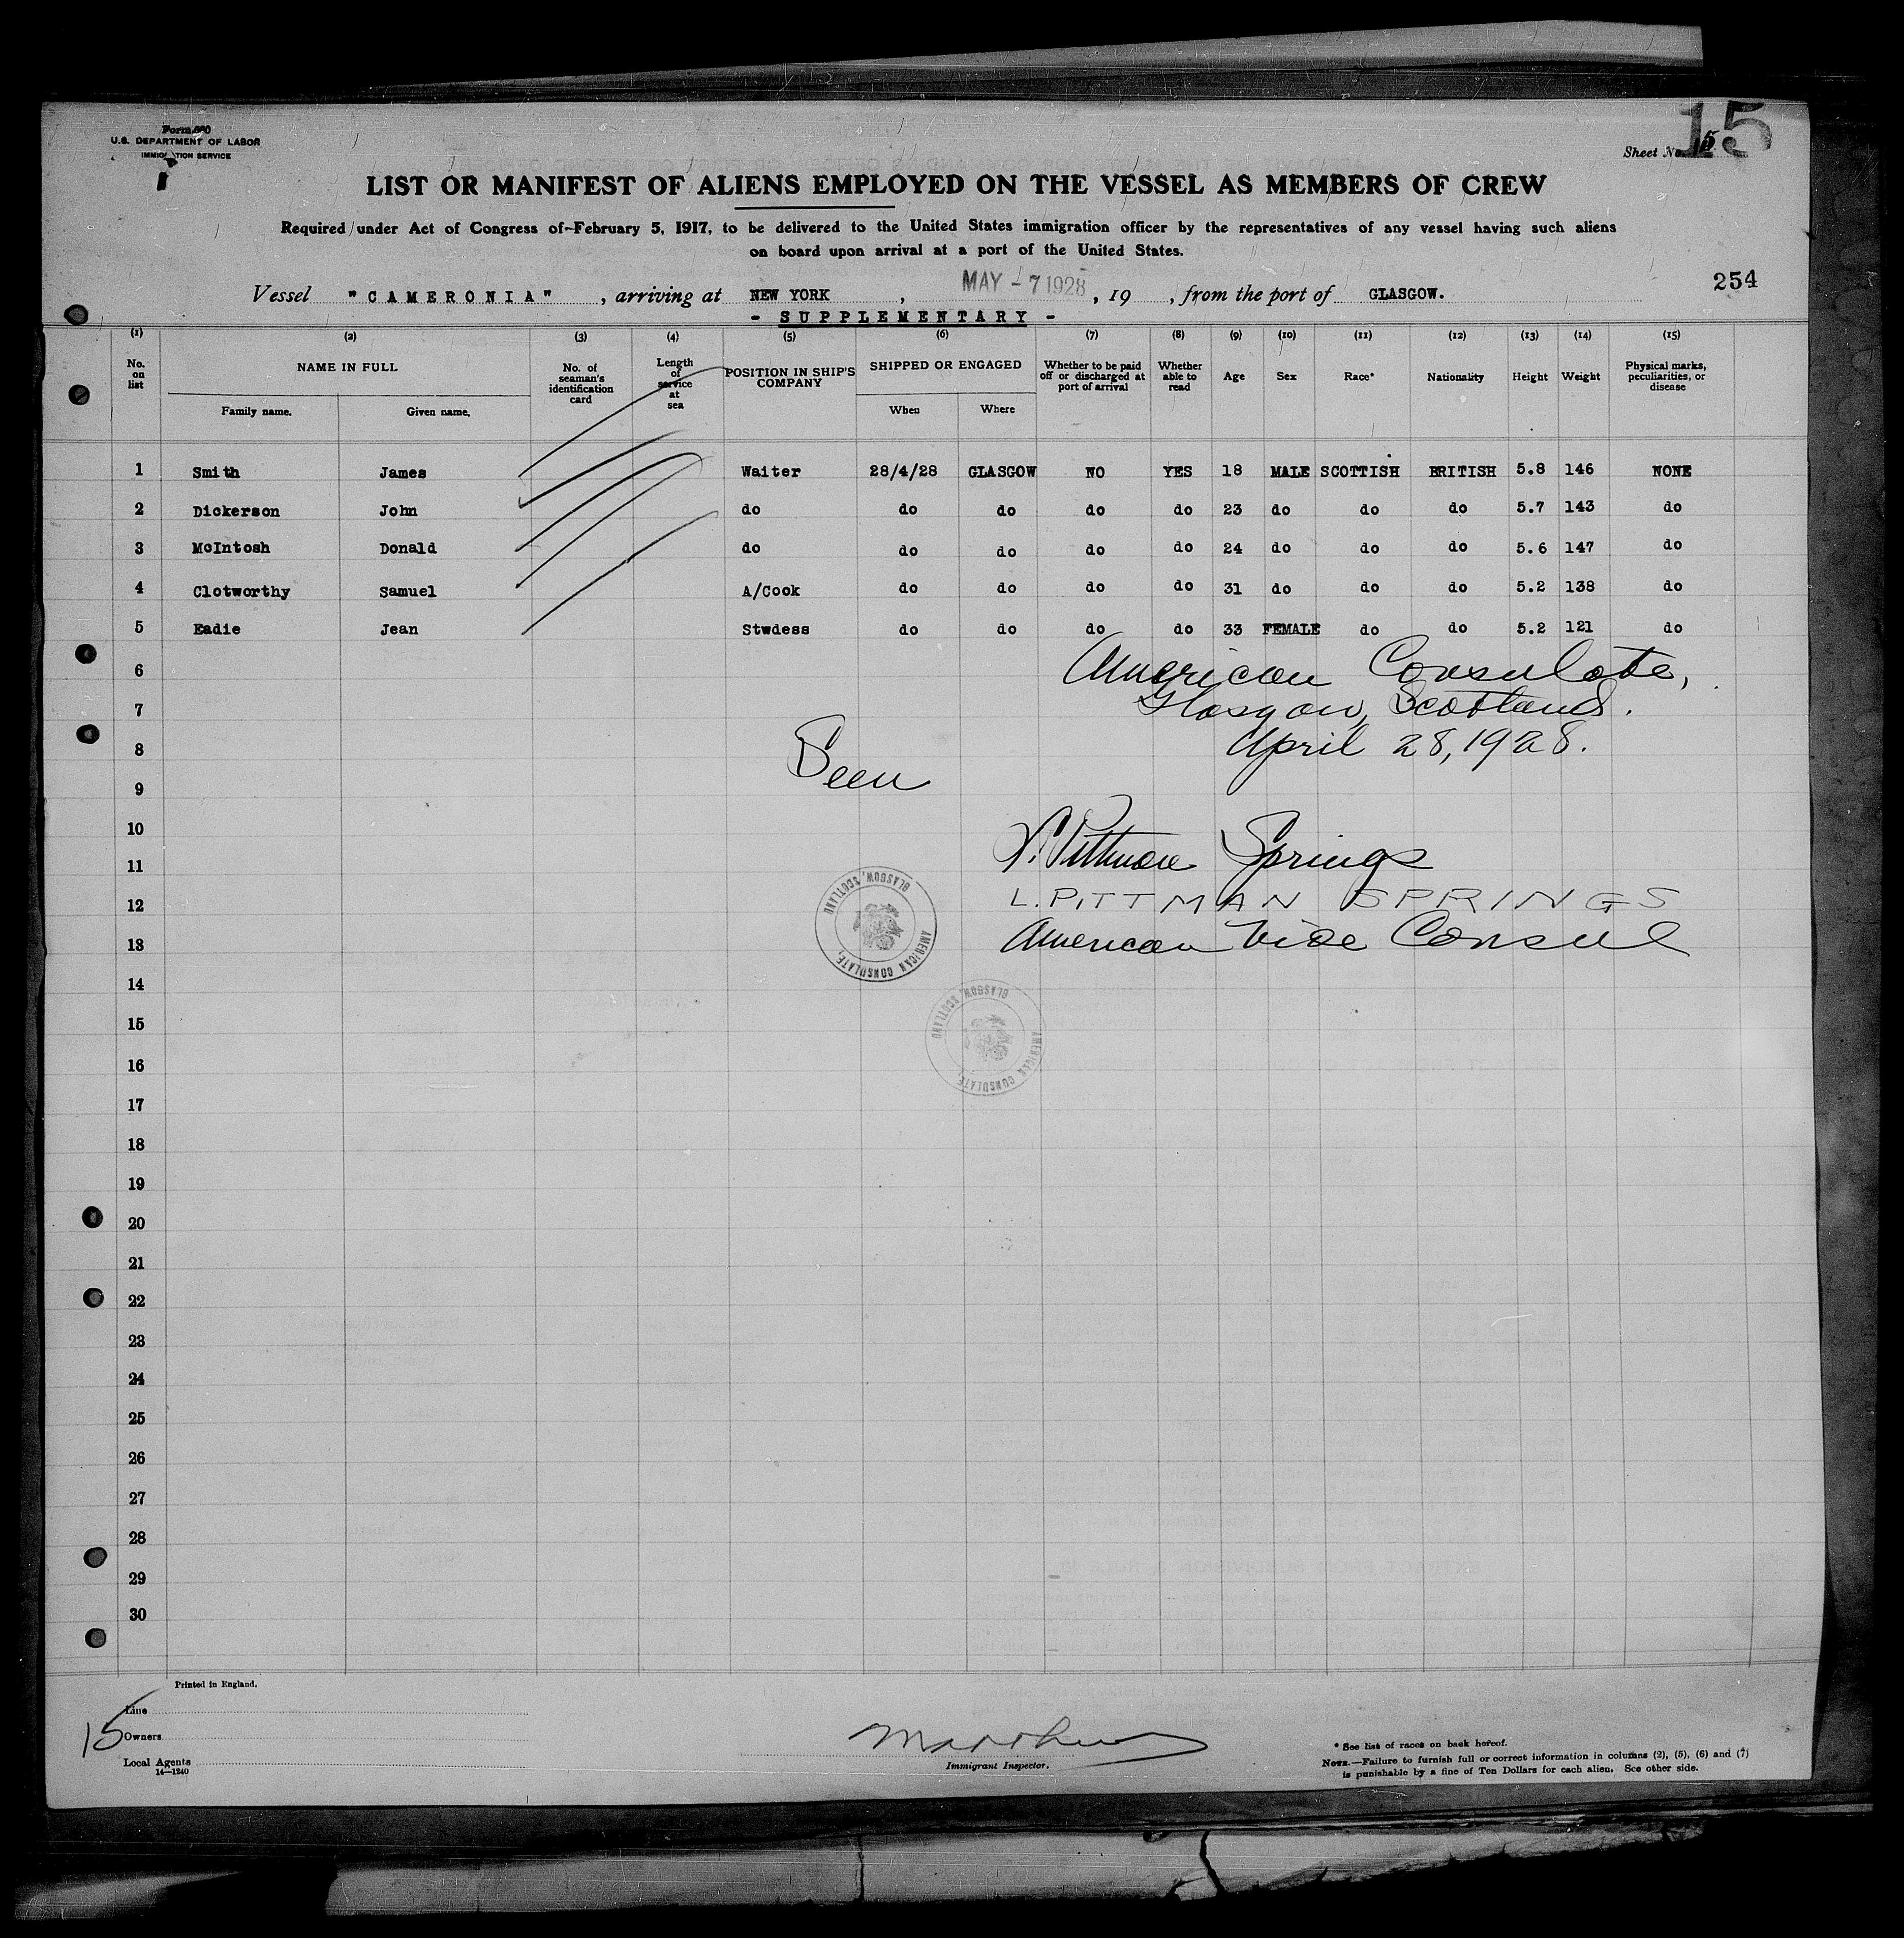 Form 680
U.S. DEPARTMENT OF LABOR
IMMIGRATION SERVICE
Sheet No. 15
15
LIST OR MANIFEST OF ALIENS EMPLOYED ON THE VESSEL AS MEMBERS OF CREW
Required under Act of Congress of February 5, 1917, to be delivered to the United States immigration officer by the representatives of any vessel having such aliens
on board upon arrival at a port of the United States.
Vessel "CAMERONIA", arriving at NEW YORK, MAY - 7 1928, 19 , from the port of GLASGOW.
254
- SUPPLEMENTARY -
(1) (2) (3) (4) (5) (6) (7) (8) (9) (10) (11) (12) (13) (14) (15)
No. on list NAME IN FULL No. of seaman's identification card Length of service at sea POSITION IN SHIP'S COMPANY SHIPPED OR ENGAGED Whether to be paid off or discharged at port of arrival Whether able to read Age Sex Race* Nationality Height Weight Physical marks, peculiarities, or disease
Family name. Given name. When Where
1 Smith James Waiter 28/4/28 GLASGOW NO YES 18 MALE SCOTTISH BRITISH 5.8 146 NONE
2 Dickerson John do do do do do 23 do do do 5.7 143 do
3 McIntosh Donald do do do do do 24 do do do 5.6 147 do
4 Clotworthy Samuel A/Cook do do do do 31 do do do 5.2 138 do
5 Eadie Jean Stwdess do do do do 33 FEMALE do do 5.2 121 do
6 American Consulate,
7 Glasgow, Scotland.
8 April 28, 1928.
Seen
9
10
11 L. Pittman Springs
12 L. PITTMAN SPRINGS
13 American Vice Consul
AMERICAN CONSULATE, GLASGOW, SCOTLAND
14
AMERICAN CONSULATE, GLASGOW, SCOTLAND
15
16
17
18
19
20
21
22
23
24
25
26
27
28
29
30
Printed in England.
Line
15
Owners
Local Agents
14—1240
Matthews
Immigrant Inspector.
* See list of races on back hereof.
NOTE.—Failure to furnish full or correct information in columns (2), (5), (6) and (7)
is punishable by a fine of Ten Dollars for each alien. See other side.